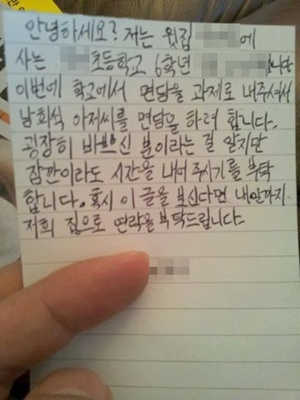 안녕하세요? 저는 윗집 에
사는 초등학교 6학년 입니다
이번에 학교에서 면담을 과제로 내주셔서
남회식 아저씨를 면담을 하려 합니다.
굉장히 바쁘신 분이라는 걸 알지만
잠깐이라도 시간을 내어 주시기를 부탁
합니다. 혹시 이 글을 보신다면 내일까지
저희 집으로 연락을 부탁드립니다.